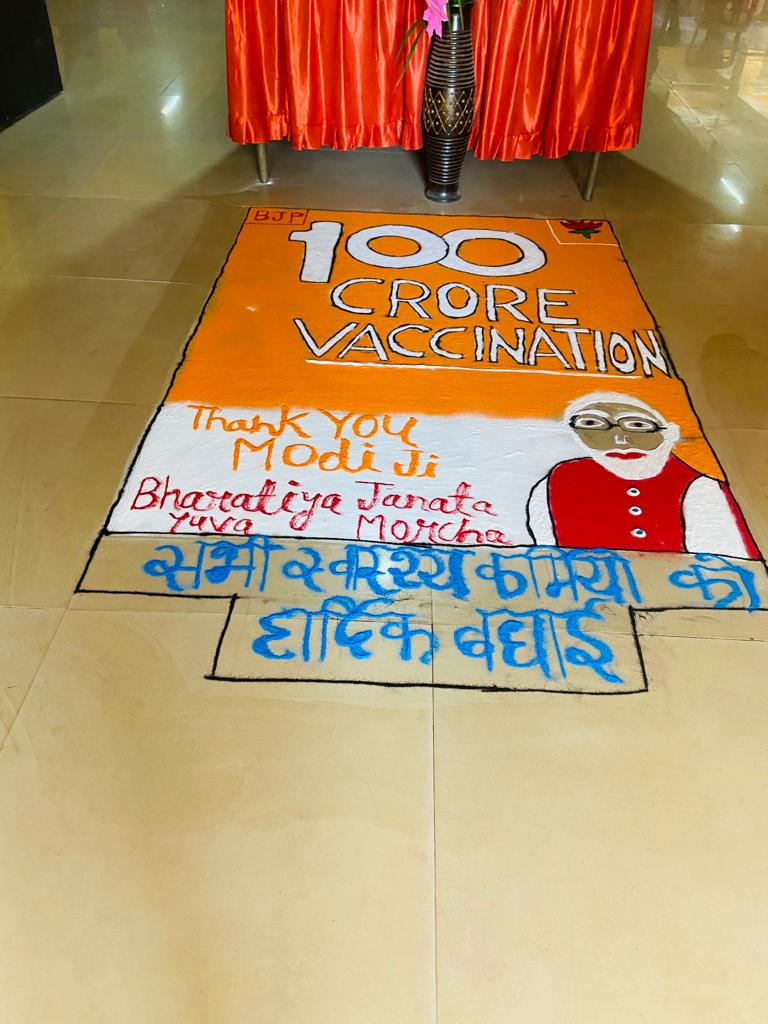 BJP
100
CRORE
VACCINATION
Thank YOU
Modi Ji
Bharatiya Janata
Yuva Morcha
सभी स्वास्थ्य कर्मियों को
हार्दिक बधाई